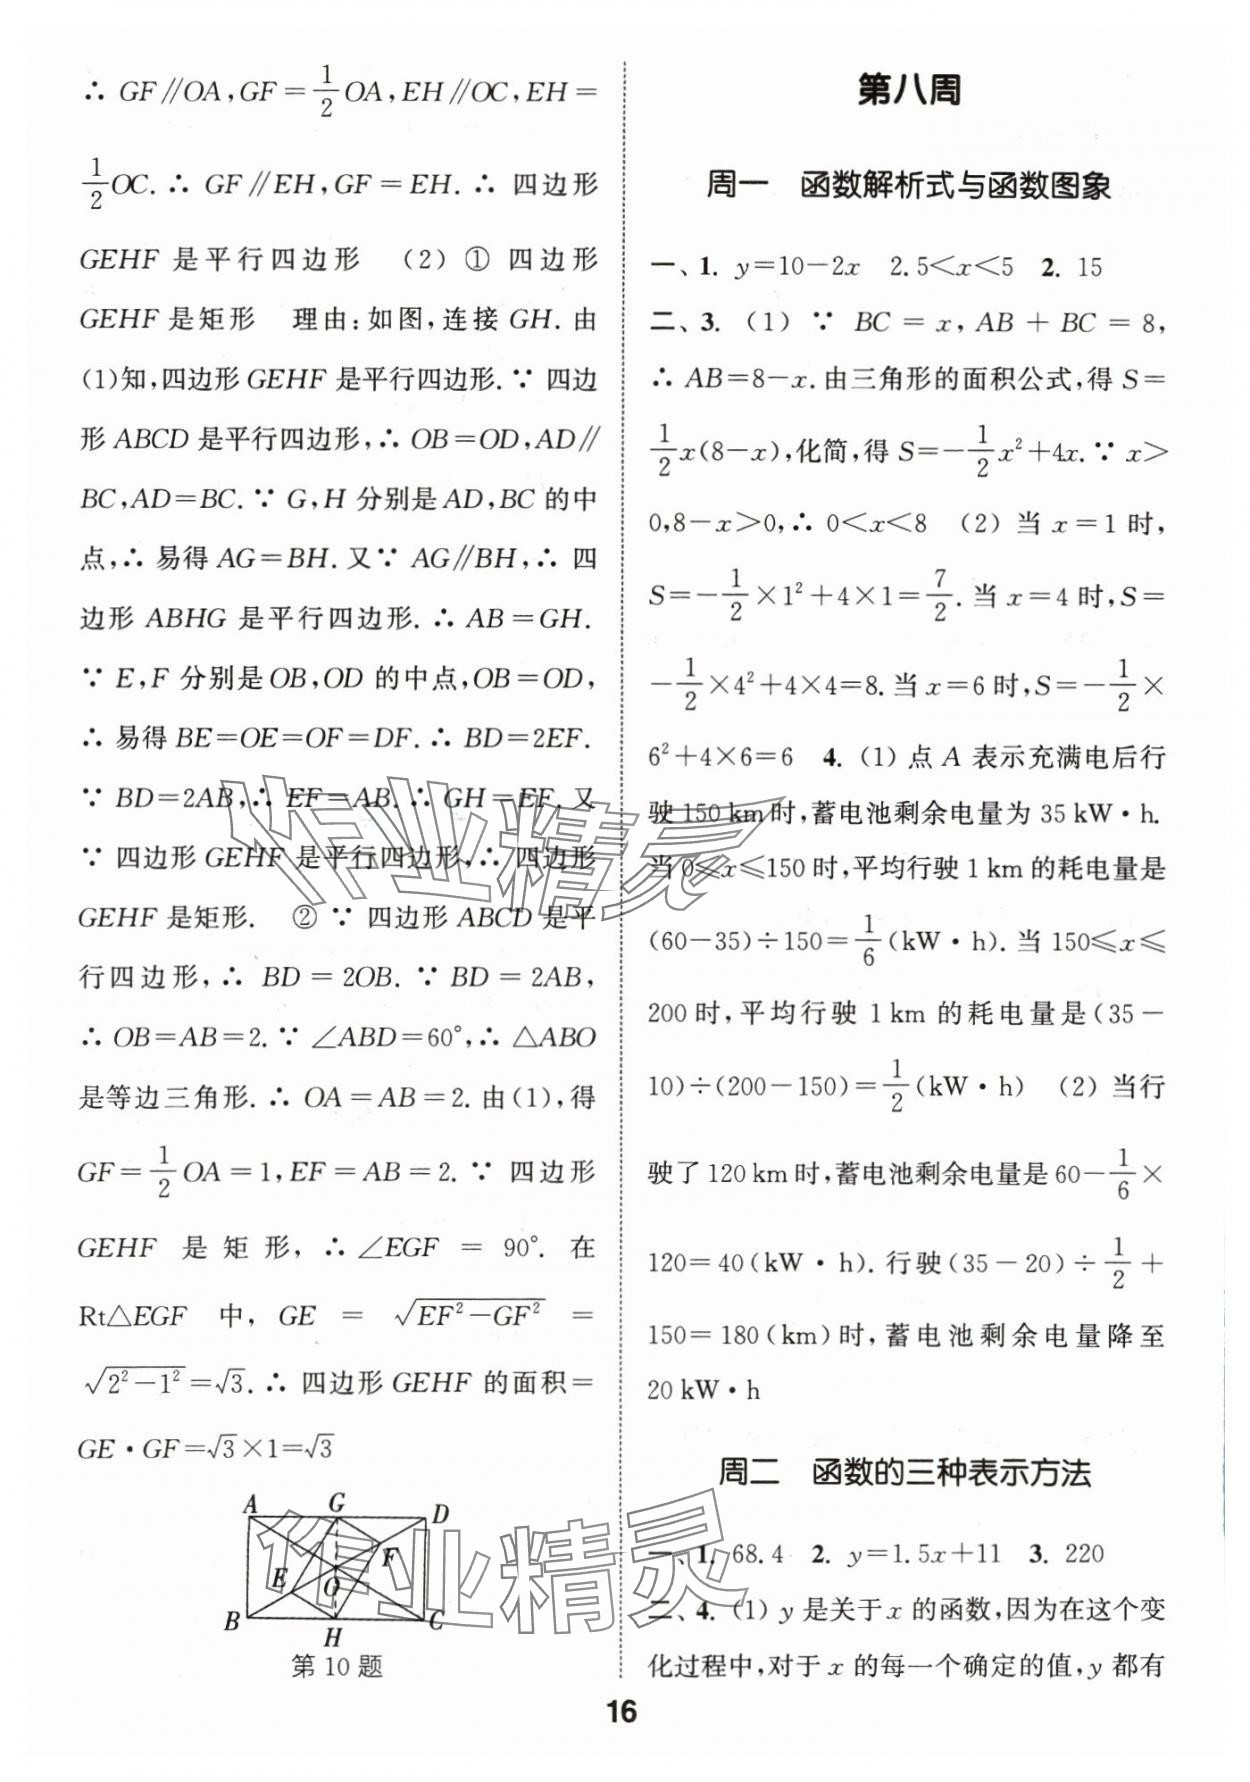 ∴ GF∥OA,GF=1/2OA,EH∥OC,EH=
1/2OC.∴ GF∥EH,GF=EH.∴ 四边形
GEHF 是平行四边形 (2) ① 四边形
GEHF 是矩形 理由:如图,连接 GH. 由
(1)知,四边形 GEHF 是平行四边形.∵ 四边
形 ABCD 是平行四边形,∴ OB=OD,AD∥
BC,AD=BC.∵ G,H 分别是 AD,BC 的中
点,∴ 易得 AG=BH.又∵ AG∥BH,∴ 四
边形 ABHG 是平行四边形.∴ AB=GH.
∵ E,F 分别是 OB,OD 的中点,OB=OD,
∴ 易得 BE=OE=OF=DF.∴ BD=2EF.
∵ BD=2AB,∴ EF=AB.∴ GH=EF. 又
∵ 四边形 GEHF 是平行四边形,∴ 四边形
GEHF 是矩形. ② ∵ 四边形 ABCD 是平
行四边形,∴ BD=2OB.∵ BD=2AB,
∴ OB=AB=2.∵ ∠ABD=60°,∴ △ABO
是等边三角形.∴ OA=AB=2.由(1),得
GF=1/2OA=1,EF=AB=2.∵ 四边形
GEHF 是矩形,∴ ∠EGF = 90°. 在
Rt△EGF 中, GE = √(EF²-GF²) =
√(2²-1²)=√3.∴ 四边形 GEHF 的面积=
GE·GF=√3×1=√3
A G D
F
E O
B H C
第 10 题
第八周
周一 函数解析式与函数图象
一、1. y=10-2x 2.5<x<5 2. 15
二、3. (1) ∵ BC=x,AB+BC=8,
∴ AB=8-x.由三角形的面积公式,得 S=
1/2x(8-x),化简,得 S=-1/2x²+4x.∵ x>
0,8-x>0,∴ 0<x<8 (2) 当 x=1 时,
S=-1/2×1²+4×1=7/2.当 x=4 时,S=
-1/2×4²+4×4=8.当 x=6 时,S=-1/2×
6²+4×6=6 4. (1) 点 A 表示充满电后行
驶 150 km 时,蓄电池剩余电量为 35 kW·h.
当 0≤x≤150 时,平均行驶 1 km 的耗电量是
(60-35)÷150=1/6(kW·h).当 150≤x≤
200 时,平均行驶 1 km 的耗电量是(35-
10)÷(200-150)=1/2(kW·h) (2) 当行
驶了 120 km 时,蓄电池剩余电量是 60-1/6×
120=40(kW·h).行驶(35-20)÷1/2+
150=180(km)时,蓄电池剩余电量降至
20 kW·h
周二 函数的三种表示方法
一、1. 68.4 2. y=1.5x+11 3. 220
二、4. (1) y 是关于 x 的函数,因为在这个变
化过程中,对于 x 的每一个确定的值,y 都有
16
作业精灵
作业精灵